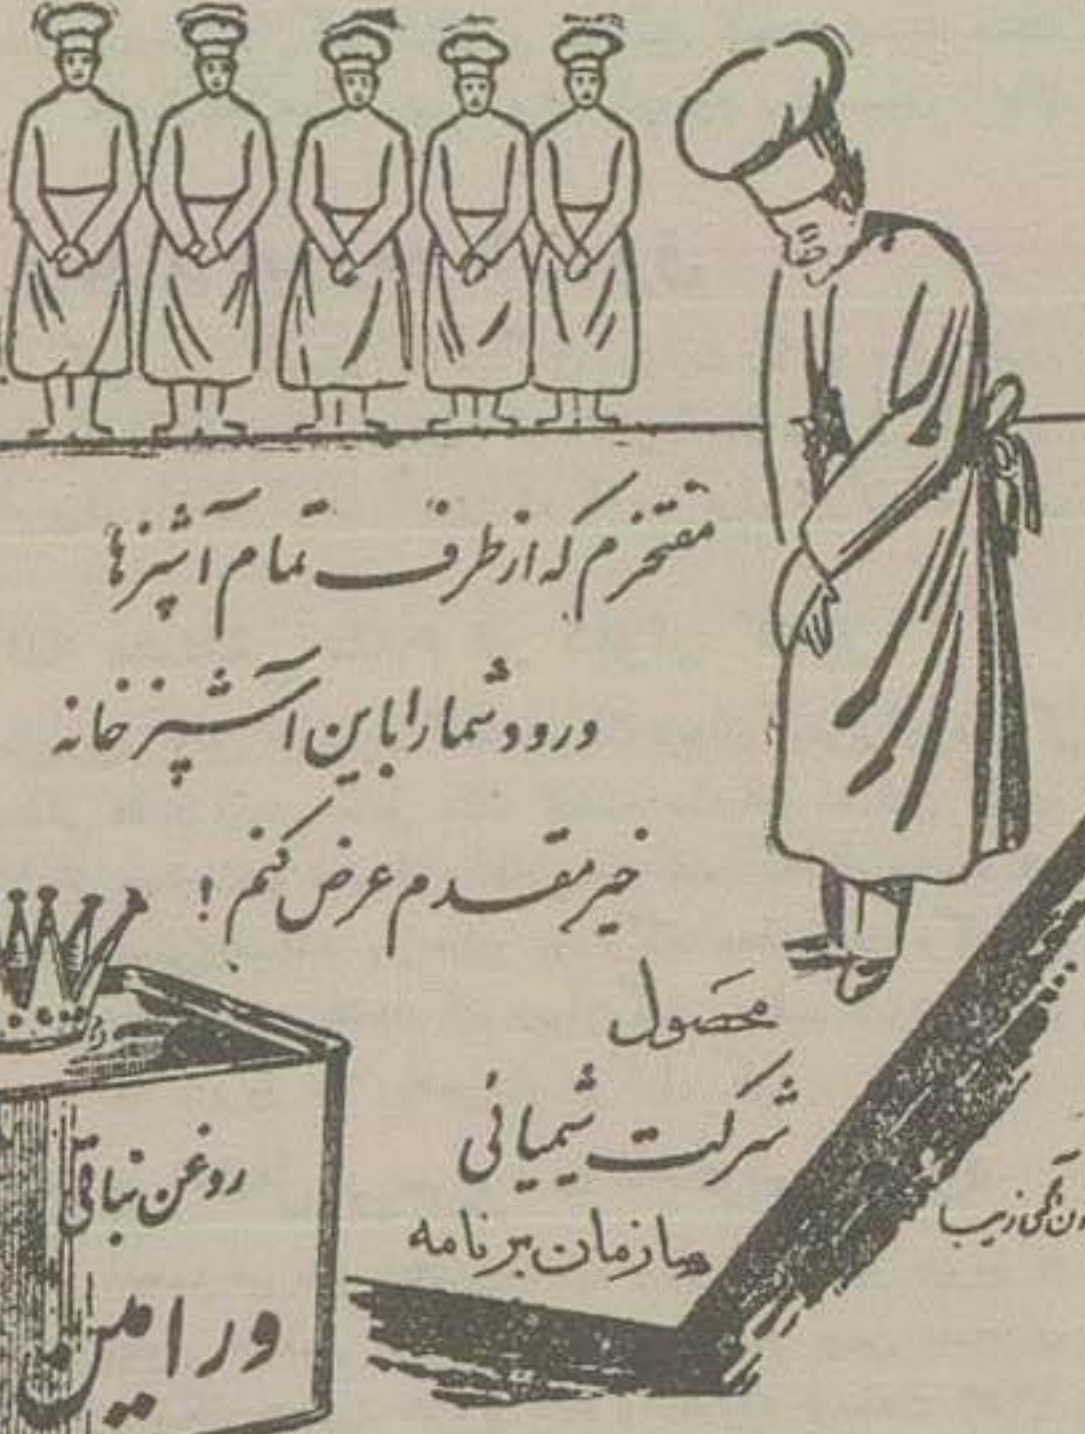 مفتخرم که از طرف تمام آشپزها
ورود شما را باین آشپزخانه
خیر مقدم عرض کنم !
محصول
شرکت شیمیائی
سازمان برنامه
روغن نباتی
ورامین